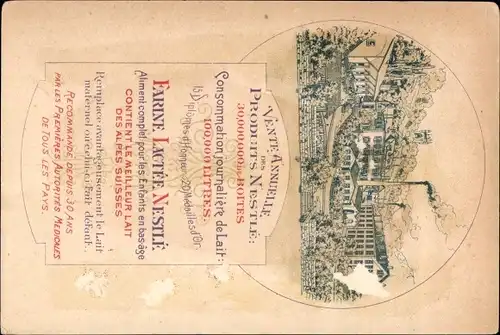 VENTE ANNUELLE
DES
PRODUITS NESTLÉ:
30,000,000 DE BOITES
Consommation journalière de Lait:
100,000 LITRES.
16 Diplômes d'Honneur 20 Médailles d'Or.
FARINE LACTÉE NESTLÉ
Aliment complet pour les Enfants en bas-âge
CONTIENT LE MEILLEUR LAIT
DES ALPES SUISSES
Remplace avantageusement le Lait
maternel où celui-ci fait défaut.
RECOMMANDÉE DEPUIS 30 ANS
PAR LES PREMIÈRES AUTORITÉS MÉDICALES
DE TOUS LES PAYS.